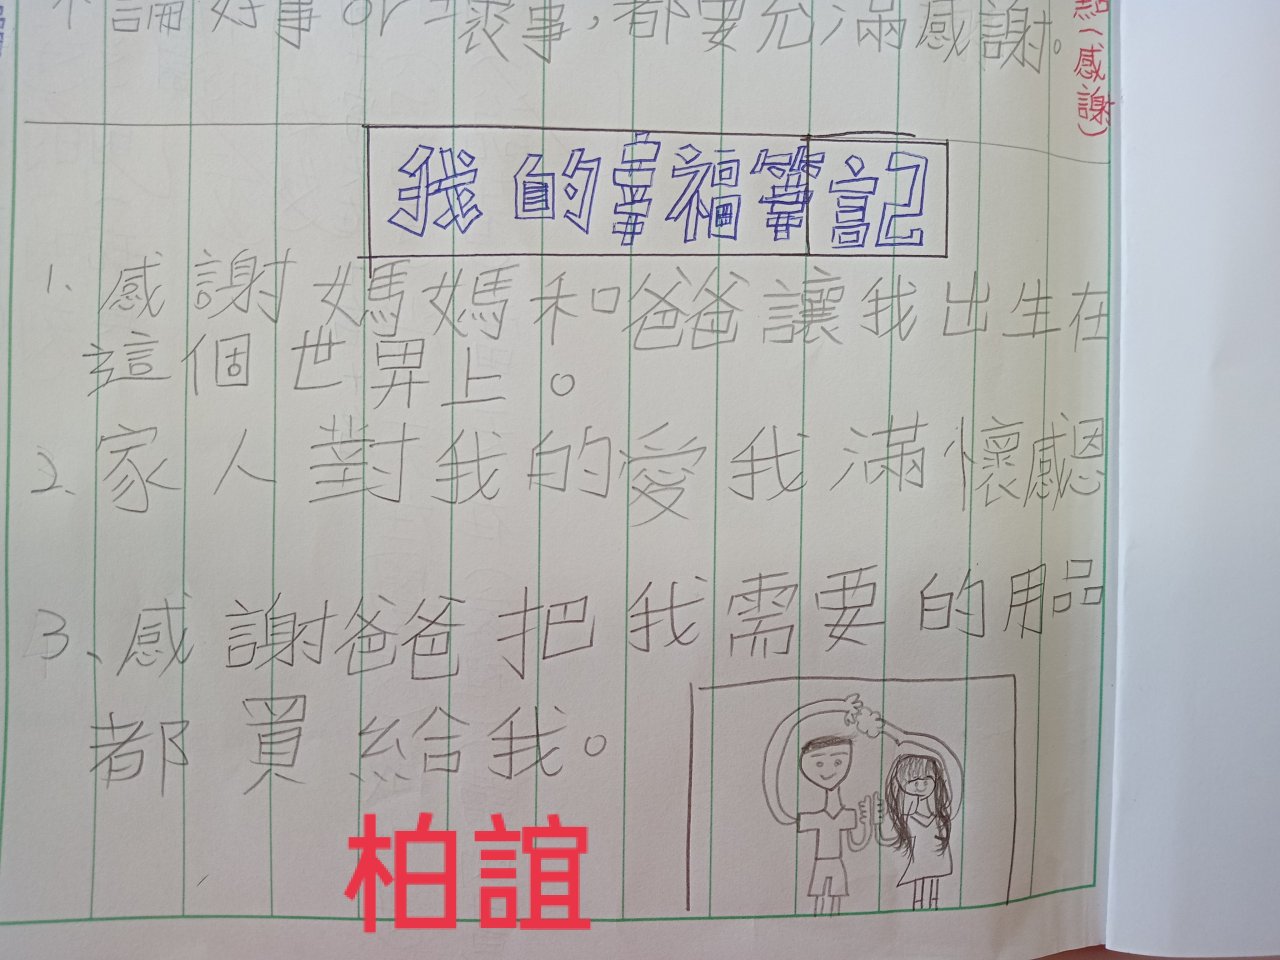 不論好事or壞事，都要充滿感謝。
(感謝)
我的幸福筆記
1.感謝媽媽和爸爸讓我出生在
這個世界上。
2.家人對我的愛我滿懷感恩
3、感謝爸爸把我需要的用品
都買給我。
柏誼